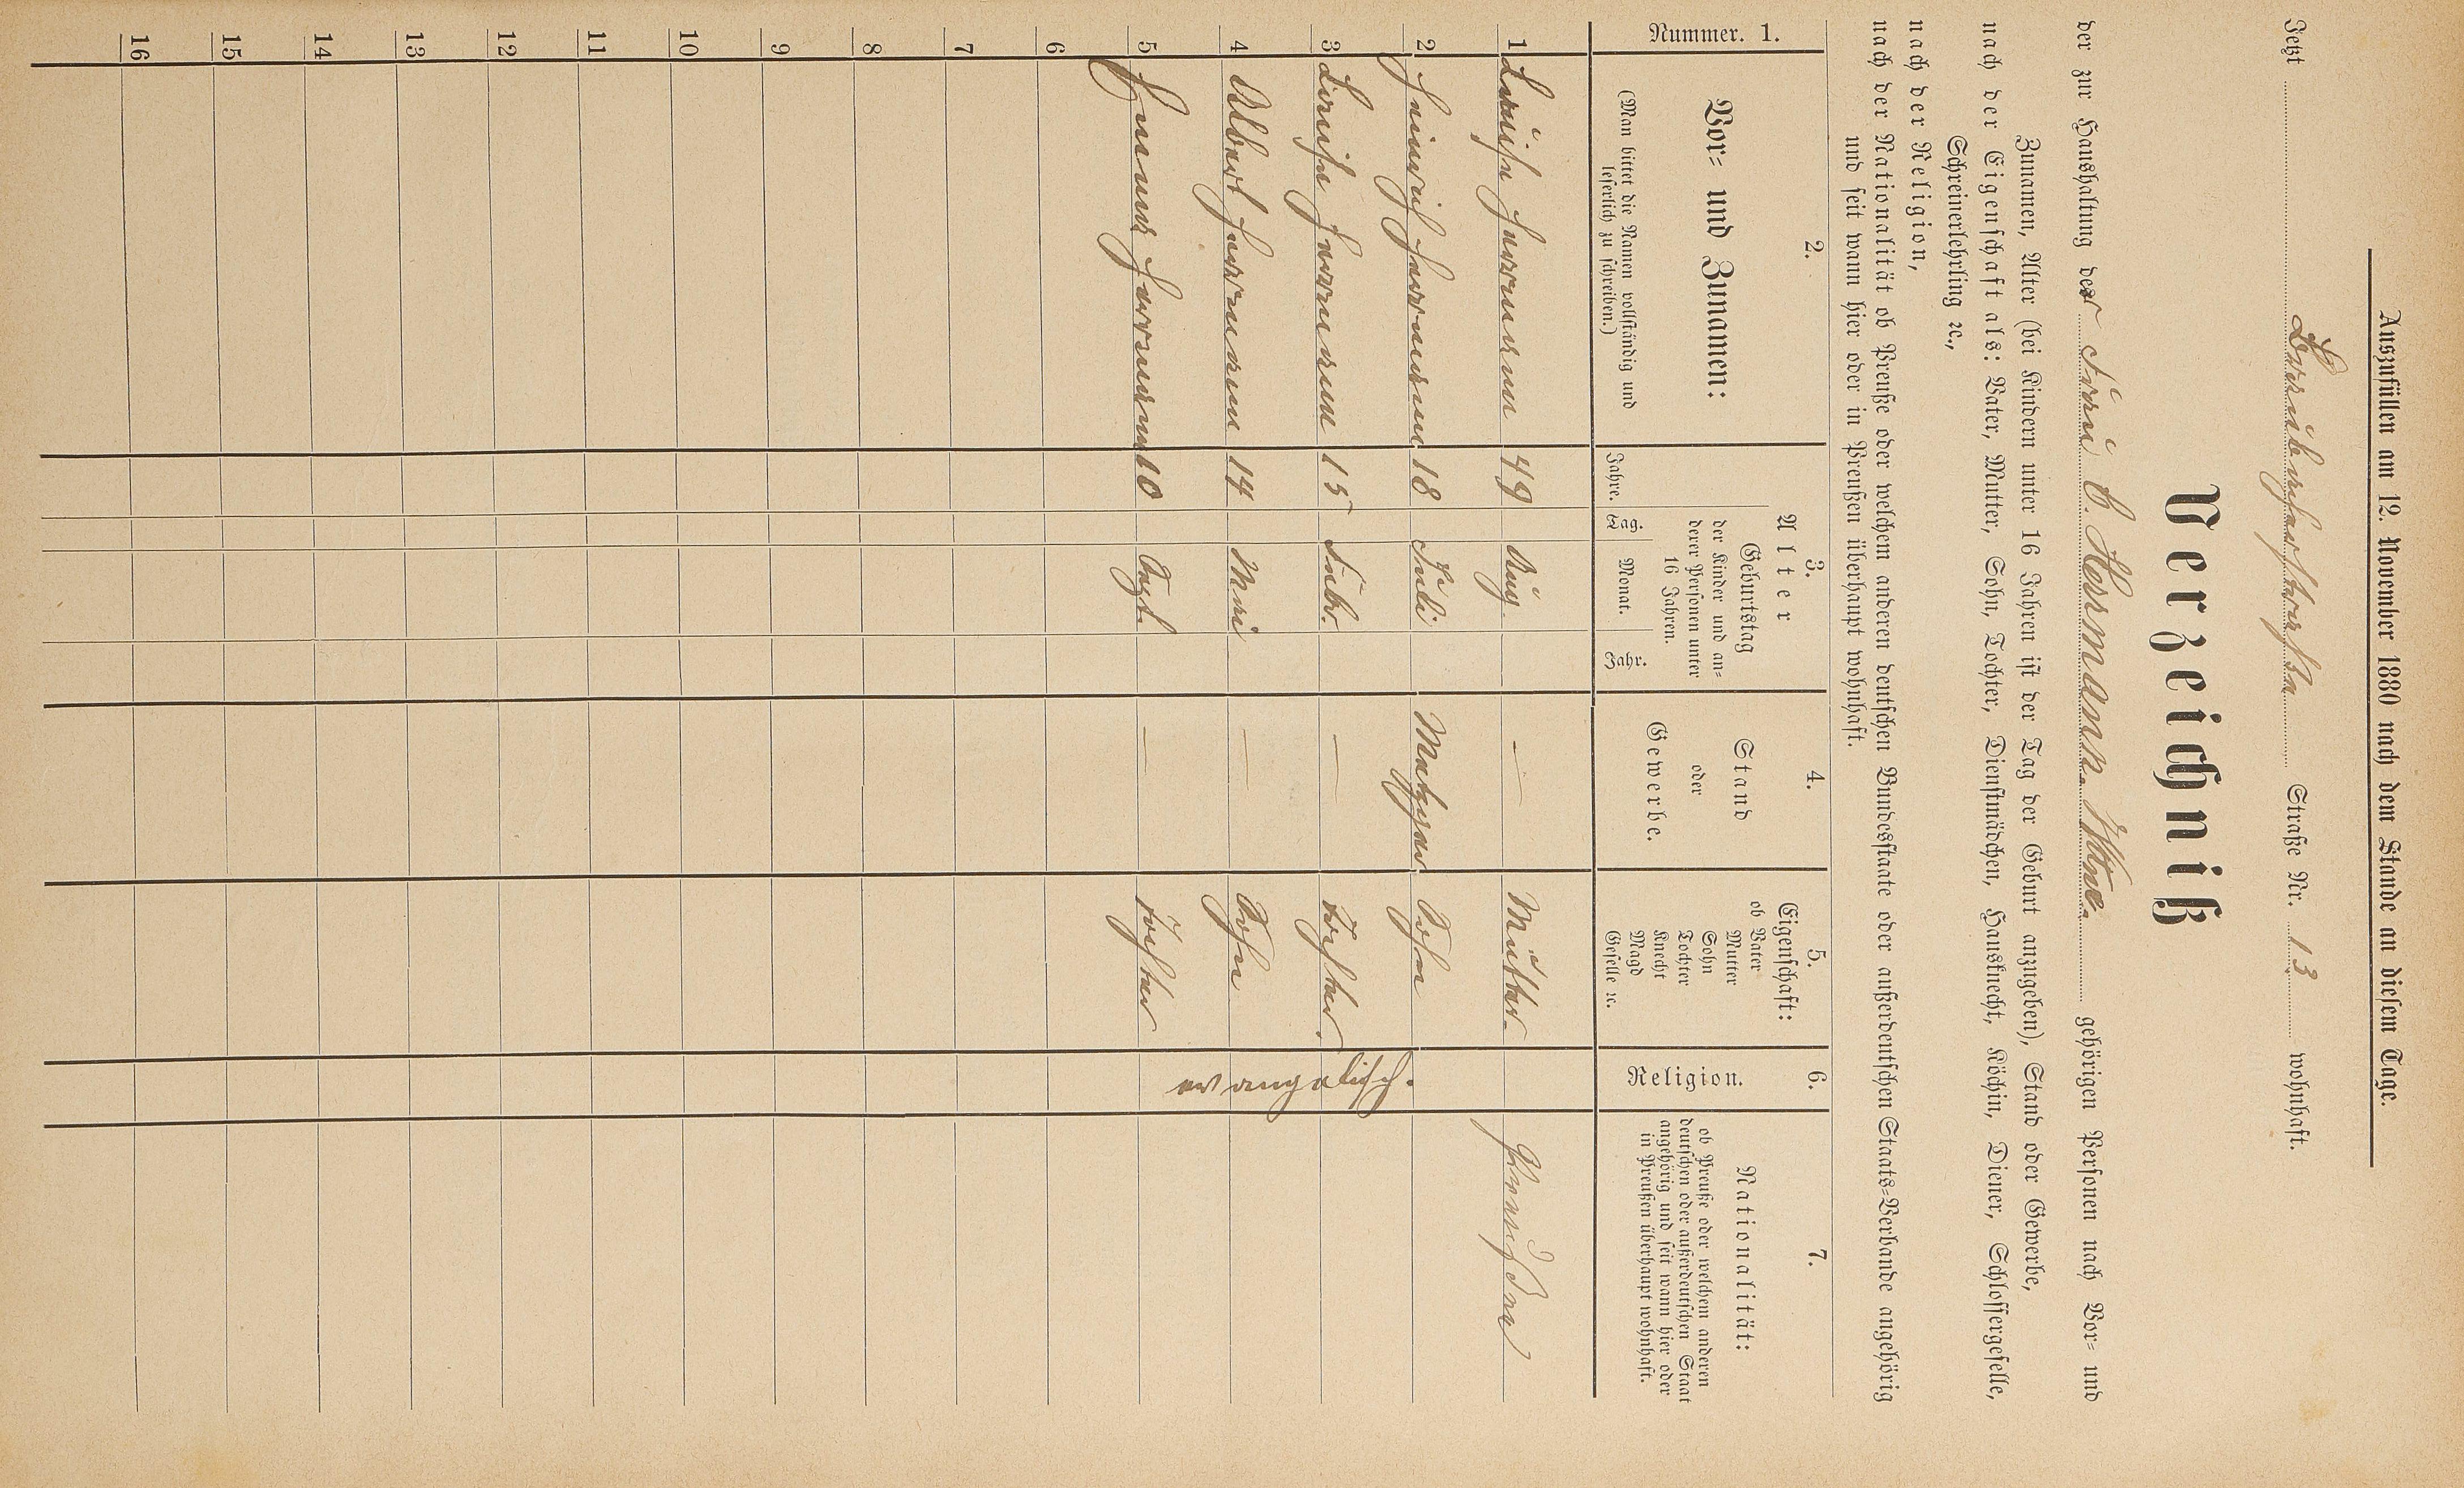 Auszufüllen am 12. November 1880 nach dem Stande an diesem Tage.
Jetzt Straße Nr. 13 wohnhaft.
Verzeichniß
der zur Haushaltung der Herrmann Wtwe. gehörigen Personen nach Vor- und
Zunamen, Alter (bei Kindern unter 16 Jahren ist der Tag der Geburt anzugeben), Stand oder Gewerbe,
nach der Eigenschaft als: Vater, Mutter, Sohn, Tochter, Dienstmädchen, Hausknecht, Köchin, Diener, Schlossergeselle,
Schreinerlehrling ꝛc.,
nach der Religion,
nach der Nationalität ob Preuße oder welchem anderen deutschen Bundesstaate oder außerdeutschen Staats-Verbande angehörig
und seit wann hier oder in Preußen überhaupt wohnhaft.
Nummer. 1.
2.
Vor- und Zunamen:
(Man bittet die Namen vollständig und
leserlich zu schreiben.)
3.
Alter
Geburtstag
der Kinder und an-
derer Personen unter
16 Jahren.
Jahre. Tag. Monat. Jahr.
4.
Stand
oder
Gewerbe.
5.
Eigenschaft:
ob Vater
Mutter
Sohn
Tochter
Knecht
Magd
Geselle ꝛc.
6.
Religion.
7.
Nationalität:
ob Preuße oder welchem anderen
deutschen oder außerdeutschen Staat
angehörig und seit wann hier oder
in Preußen überhaupt wohnhaft.
1 Louise Herrmann 49 Aug. — Mutter Preußen
2 Heinrich Herrmann 18 Juli Metzger Sohn
3 Louise Herrmann 15 Febr. — Tochter.
4 Albert Herrmann 14 Mai — Sohn
5 Herrmann 10 Sept. — Tochter
evangelisch.
6
7
8
9
10
11
12
13
14
15
16